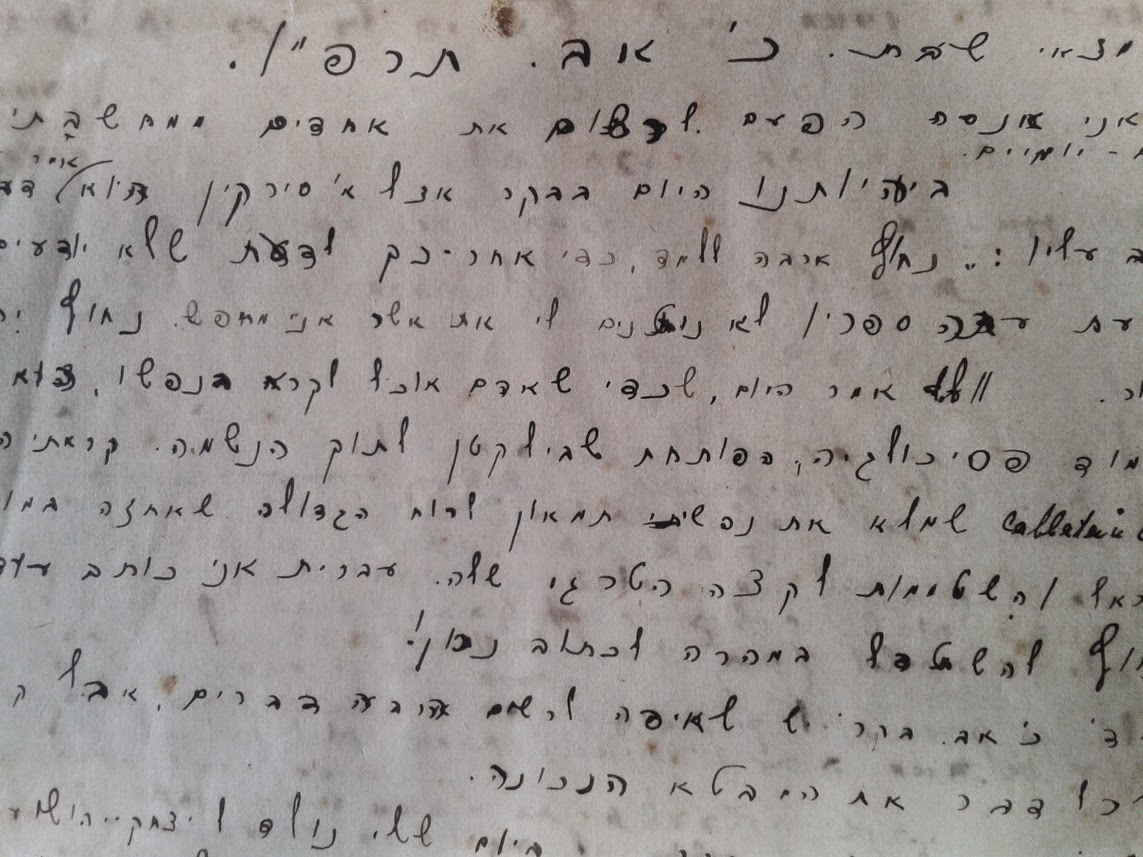 מצאי שבת. כ' אב. תרפ"ו.
אני אונסה הפעם לרשום את אחדים ממחשבתי
- יומיים.
אומר
ביעהיותנו היום בבקר אצל א' סירקין הוא
עליו: ,, נחוץ ארבה ללמד, כדי אחר-כך לדעת שלא יודעים
ספריו לא נותנים לי את אשר אני מחפש. נחוץ
אמר היום, שכדי שאדם אוכל לקרא בנפשו, הוא
פסיכולגיה, הפותחת שביל קטן לתוך הנשמה. קראתי
שמלא את נפשי תמאון לרוח הגדולה שאחזה
והשטימות לקצה הטרגי שלה. עברית אני כותב
להשתדל במהרה לכתוב נכון!
כ' אב. בקר. יש שאיפה לרשום ארבעה דברים, אבל
דבר את המבטא הנכונה.
ביום ששי נולד ליצחק-יהושע